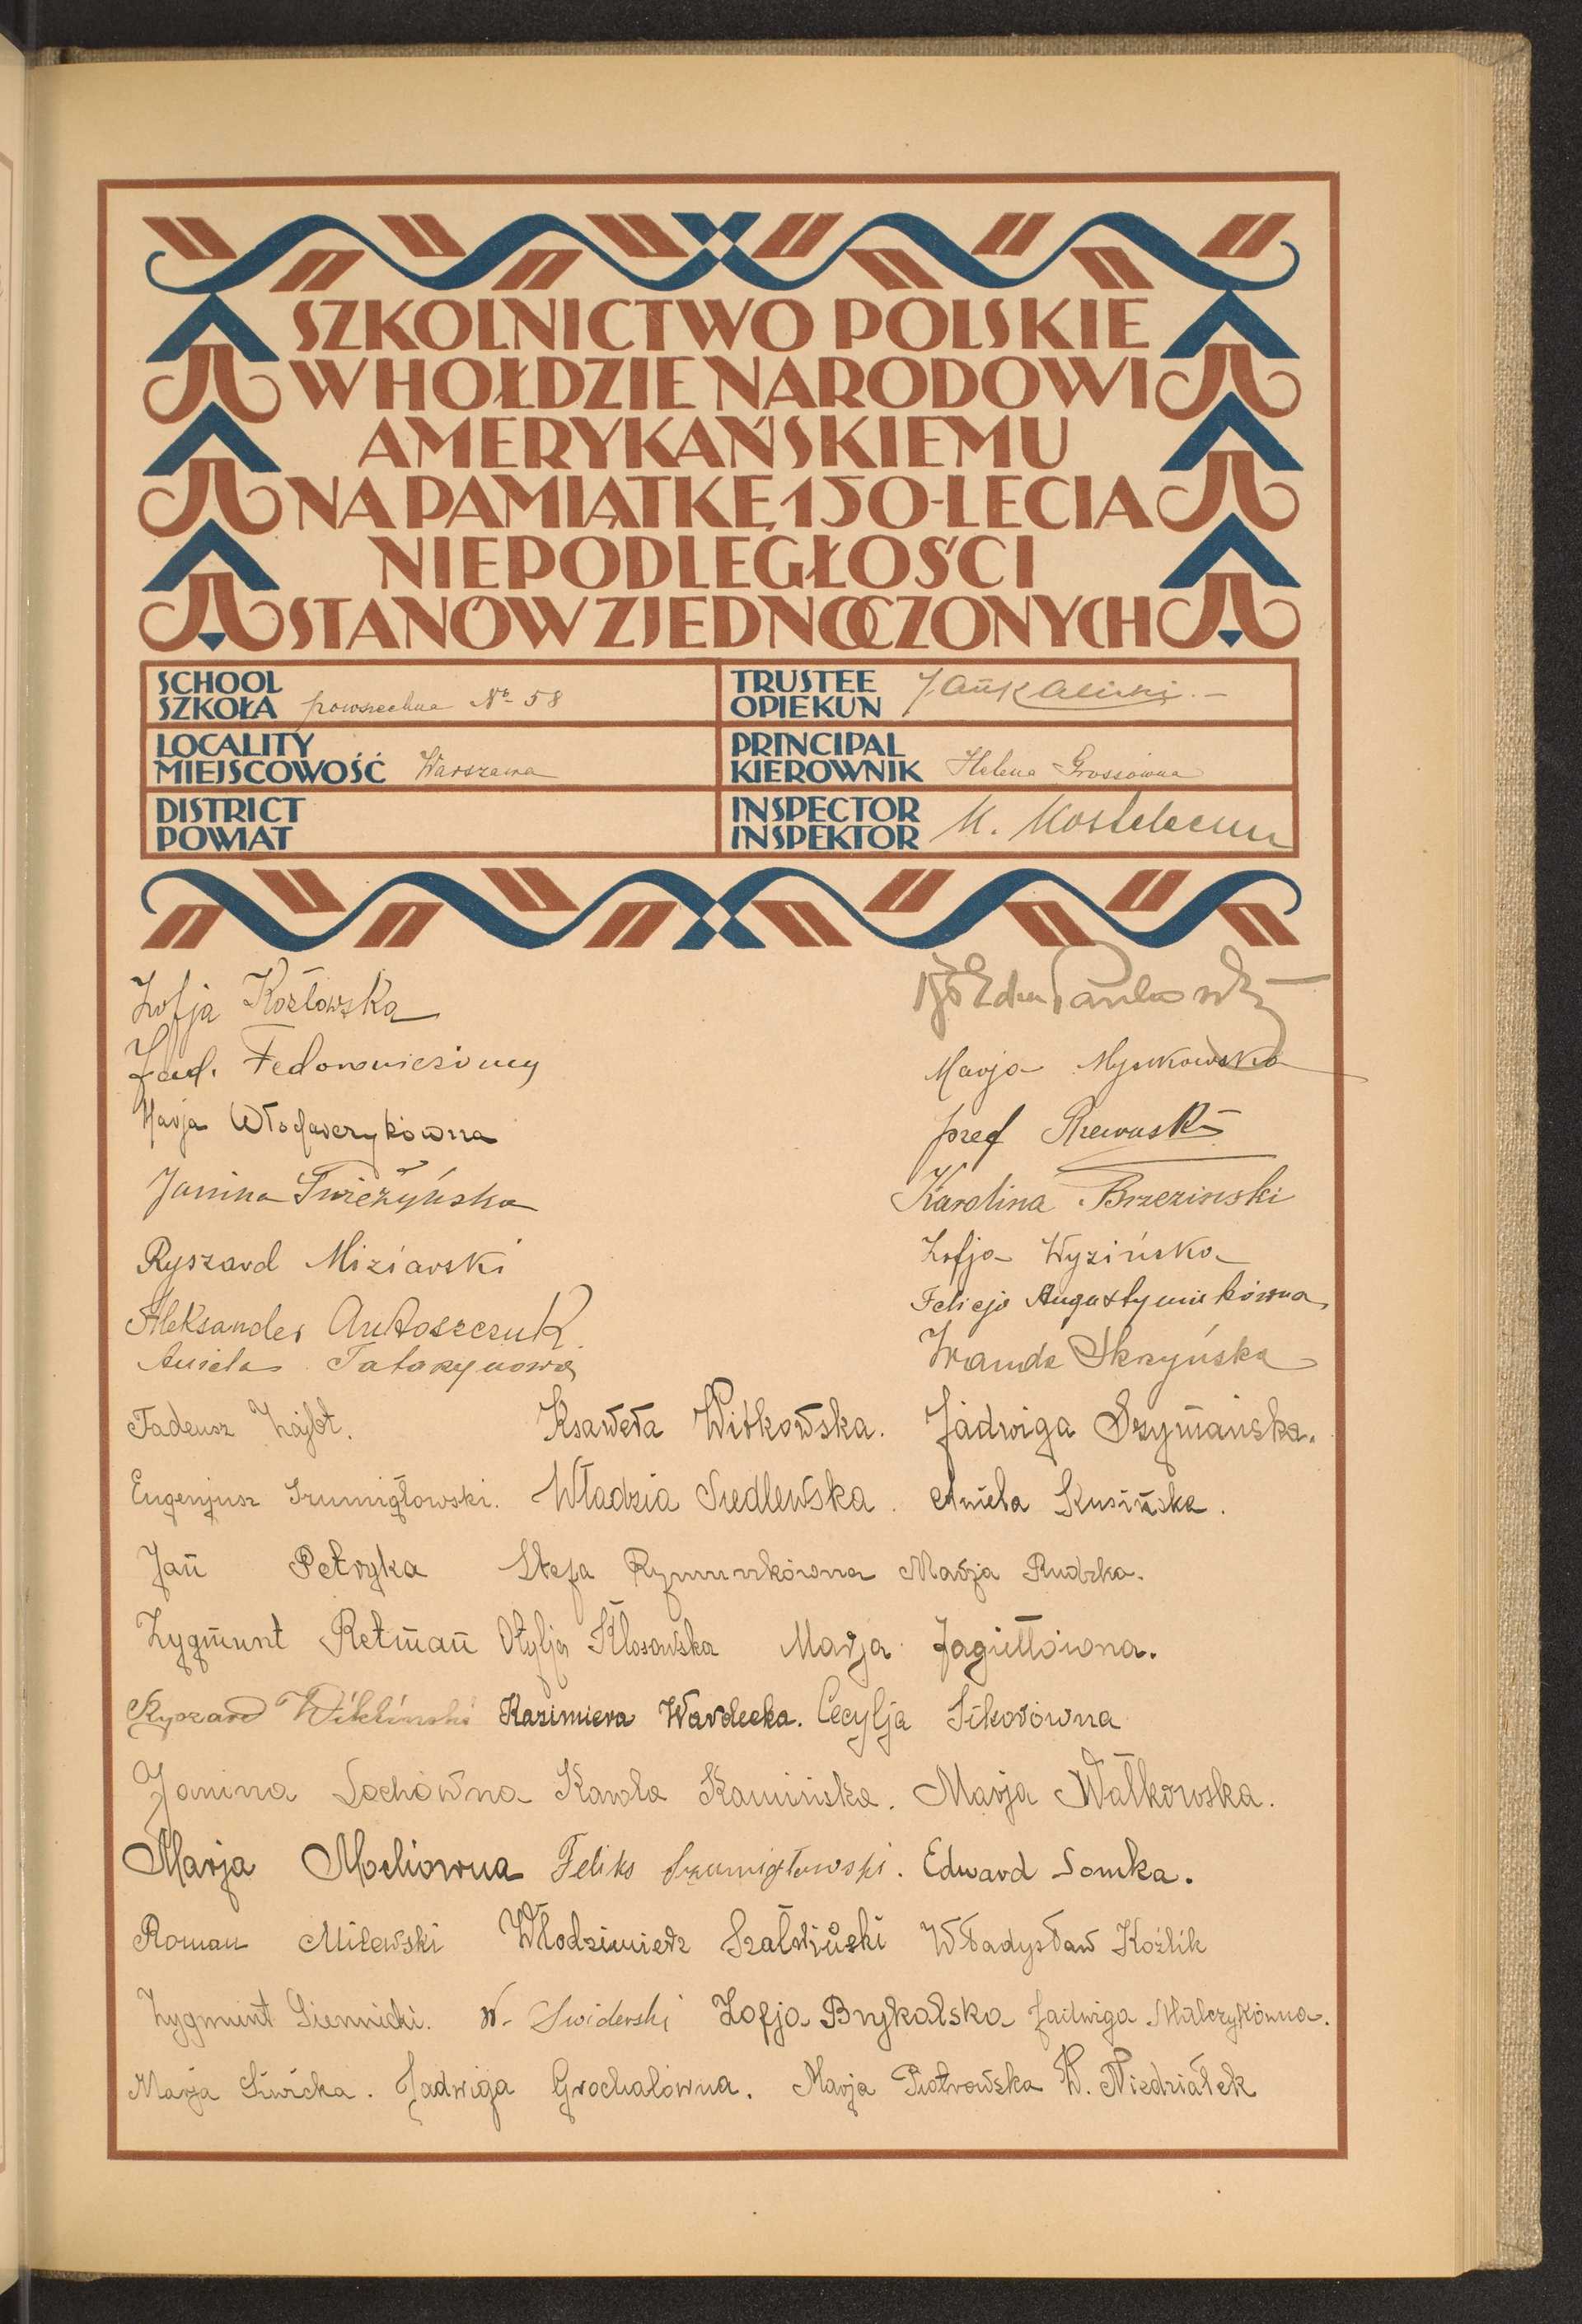 SZKOLNICTWO POLSKIE
W HOŁDZIE NARODOWI
AMERYKAŃSKIEMU
NA PAMIĄTKĘ 150-LECIA
NIEPODLEGŁOŚCI
STANÓW ZJEDNOCZONYCH
SCHOOL
SZKOŁA powszechna № 58
TRUSTEE
OPIEKUN Jan Kaliski
LOCALITY
MIEJSCOWOŚĆ Warszawa
PRINCIPAL
KIEROWNIK Helena Grossówna
DISTRICT
POWIAT
INSPECTOR
INSPEKTOR M.
Zofja Kozłowska
Jad.
Marja Mystkowska
Marja Włodarczykówna
Józef Rzewuski
Janina Świeżyńska
Karolina Brzezinski
Ryszard Miziarski
Zofja Wyzińska
Aleksander Antoszczuk
Felicja Augustyniakówna
Aniela
Wanda Skrzyńska
Tadeusz Zajbt. Ksawera Witkowska. Jadwiga Szymańska.
Eugenjusz Szumigłowski. Władzia Siedlewska. Aniela Kusińska.
Jan Petryka Stefa Marja Rudzka.
Zygmunt Retman Otylja Kłosowska Marja Jagiełłówna.
Ryszard Wikliński Kazimiera Wardecka. Cecylja Sikorówna
Janina Lochówna Karola Kamińska. Marja Wałkowska.
Marja Mochówna Feliks Szumigłowski. Edward Somka.
Roman Milewski Włodzimierz Szałwiński Władysław Koźlik
Zygmunt Siennicki. W. Swiderski Zofja Brykalska Jadwiga Malczykówna.
Marja Siwicka. Jadwiga Grochalówna. Marja Piotrowska W. Niedziałek